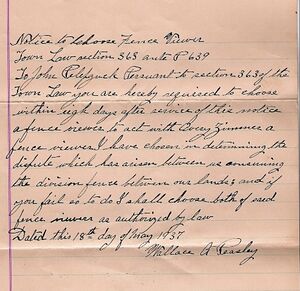 Notice to Choose Fence Viewer
Town Law section 363 ante P 639
To John Pelefzuck Persuant to section 363 of the
Town Law you are hereby required to choose
within eigh days after service of this notice
a fence viewer to act with Avery a
fence viewer I have chosen in determining the
dispute which has arisen between us concerning
the division fence between our lands; and if
you fail so to do I shall choose both of said
fence viewer as authorized by law
Dated this 18th day of May 1937
Wallace A Peasley